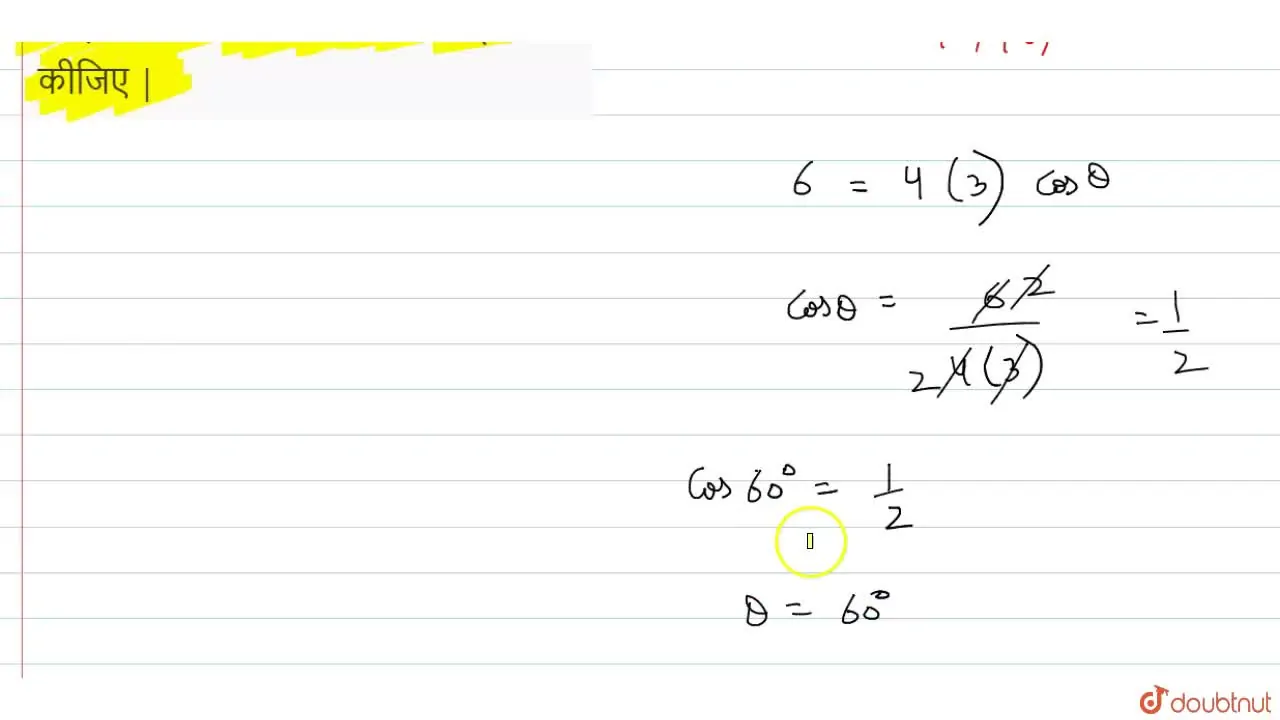 कीजिए |
6 = 4 (3) cos θ
cos θ = 6 2 / 2 4 (3) = 1/2
cos 60° = 1/2
θ = 60°
doubtnut